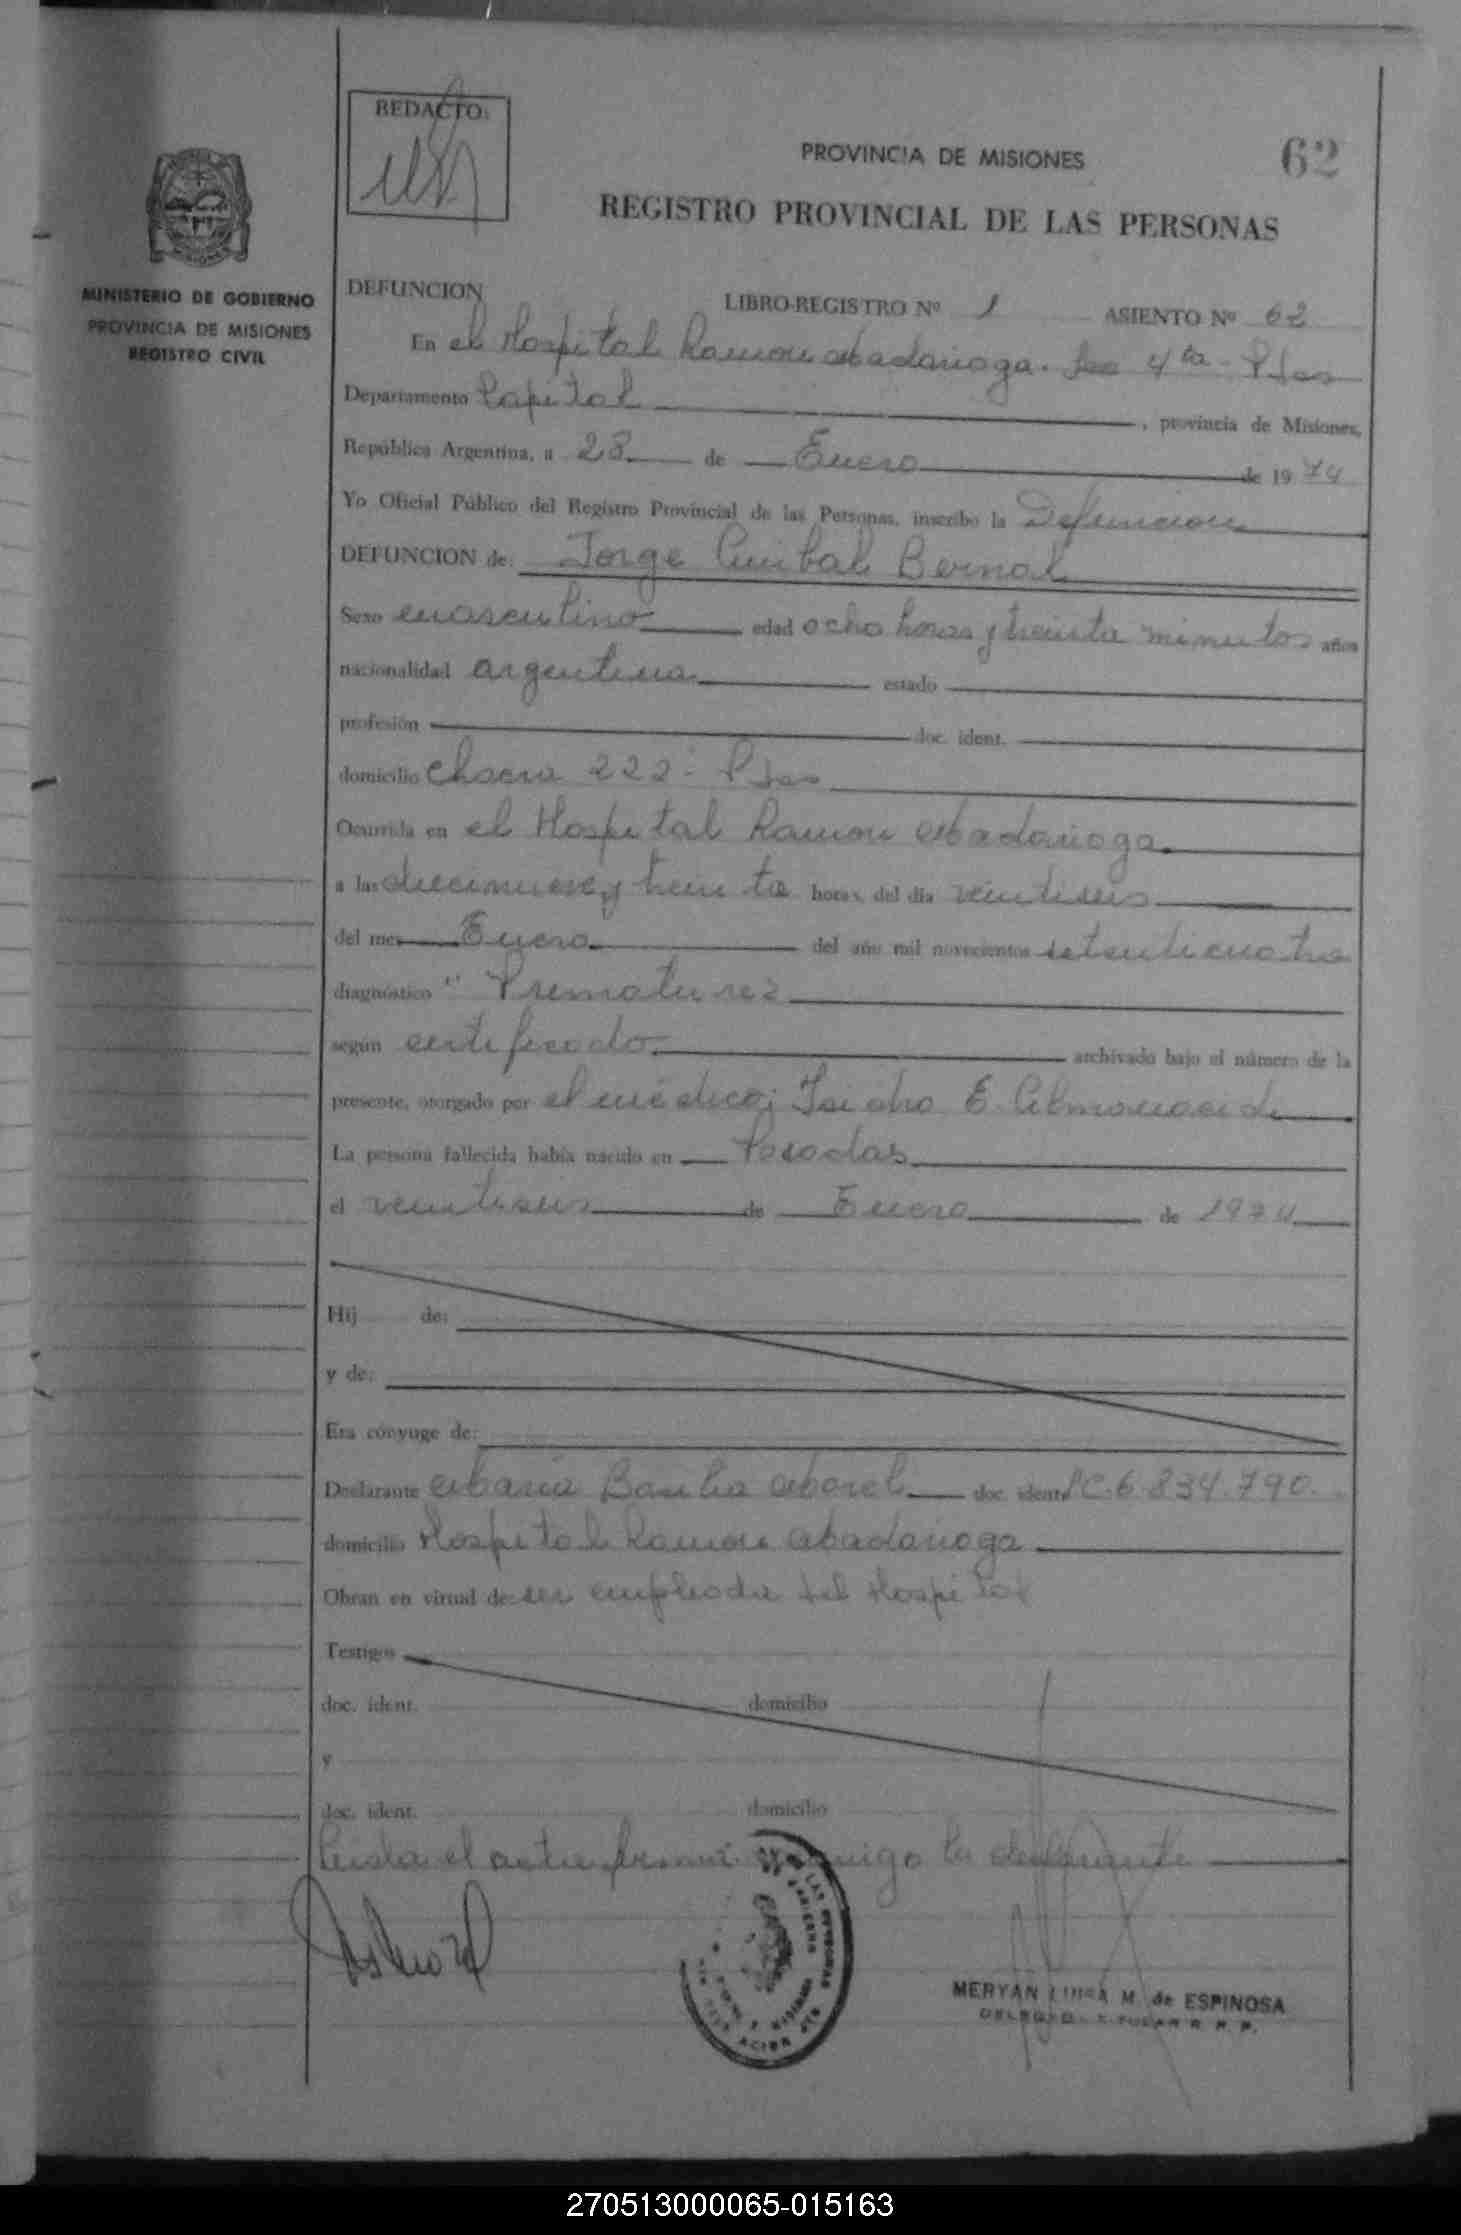 REDACTO:
62
PROVINCIA DE MISIONES
REGISTRO PROVINCIAL DE LAS PERSONAS
MINISTERIO DE GOBIERNO
PROVINCIA DE MISIONES
REGISTRO CIVIL
DEFUNCION
LIBRO-REGISTRO Nº 1 ASIENTO Nº 62
En el Hospital Ramon Madariaga. Sec 4ta - Pdas
Departamento Capital, provincia de Misiones,
República Argentina, a 28 de Enero de 1974
Yo Oficial Público del Registro Provincial de las Personas, inscribo la Defuncion
DEFUNCION de: Jorge Anibal Bernal
Sexo masculino edad ocho horas y treinta minutos años
nacionalidad argentina estado
profesión doc. ident.
domicilio Chacra 222- Pdas
Ocurrida en el Hospital Ramon Madariaga
a las diecinueve y treinta horas, del día veintiseis
del mes Enero del año mil novecientos setenticuatro
diagnóstico " Prematurez
según certificado archivado bajo el número de la
presente, otorgado por el médico; Isidro E. Almonacid
La persona fallecida había nacido en Posadas
el veintiseis de Enero de 1974
Hij de:
y de:
Era cónyuge de:
Declarante Maria doc. ident. LC. 6.834.790.
domicilio Hospital Ramon Madariaga
Obran en virtud de: ser empleada del Hospital
Testigos
doc. ident. domicilio
y
doc. ident. domicilio
Leida el acta firma conmigo la declarante
MERYAN LUISA M. de ESPINOSA
DELEGADA TITULAR R. P. P.
270513000065-015163